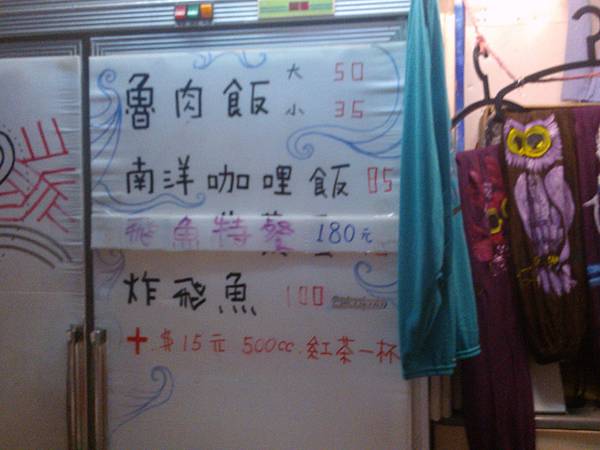 魯肉飯 大 50
小 35
南洋咖哩飯 85
飛魚特餐 180元
炸飛魚 100
+ $15元 500cc 紅茶一杯